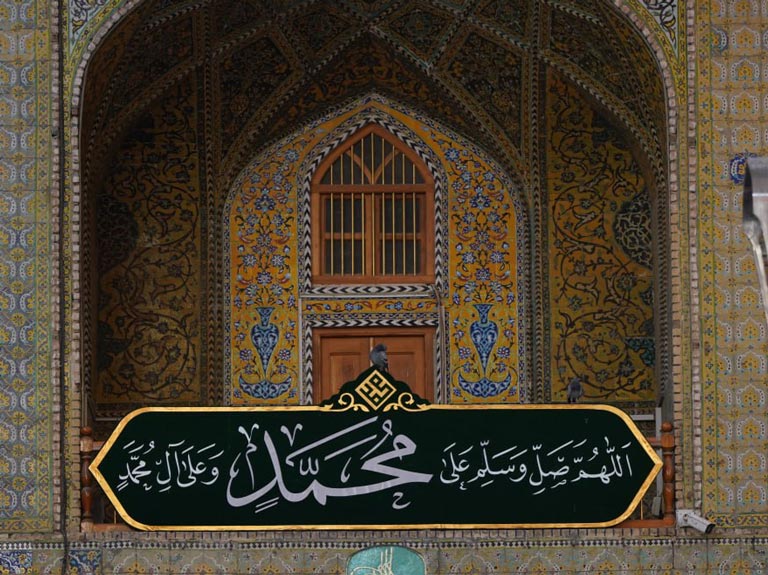 اَللّٰهُمَّ صَلِّ وَسَلِّمْ عَلَىٰ مُحَمَّدٍ وَعَلَىٰ آلِ مُحَمَّدٍ